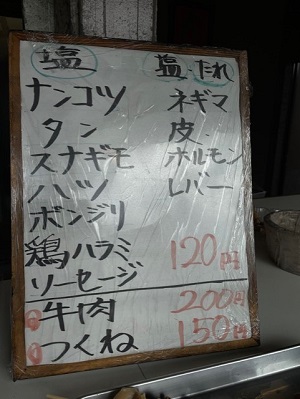 塩
ナンコツ
タン
スナギモ
ハツ
ボンジリ
鶏ハラミ
ソーセージ
塩・たれ
ネギマ
皮
ホルモン
レバー
120円
牛肉 200円
つくね 150円